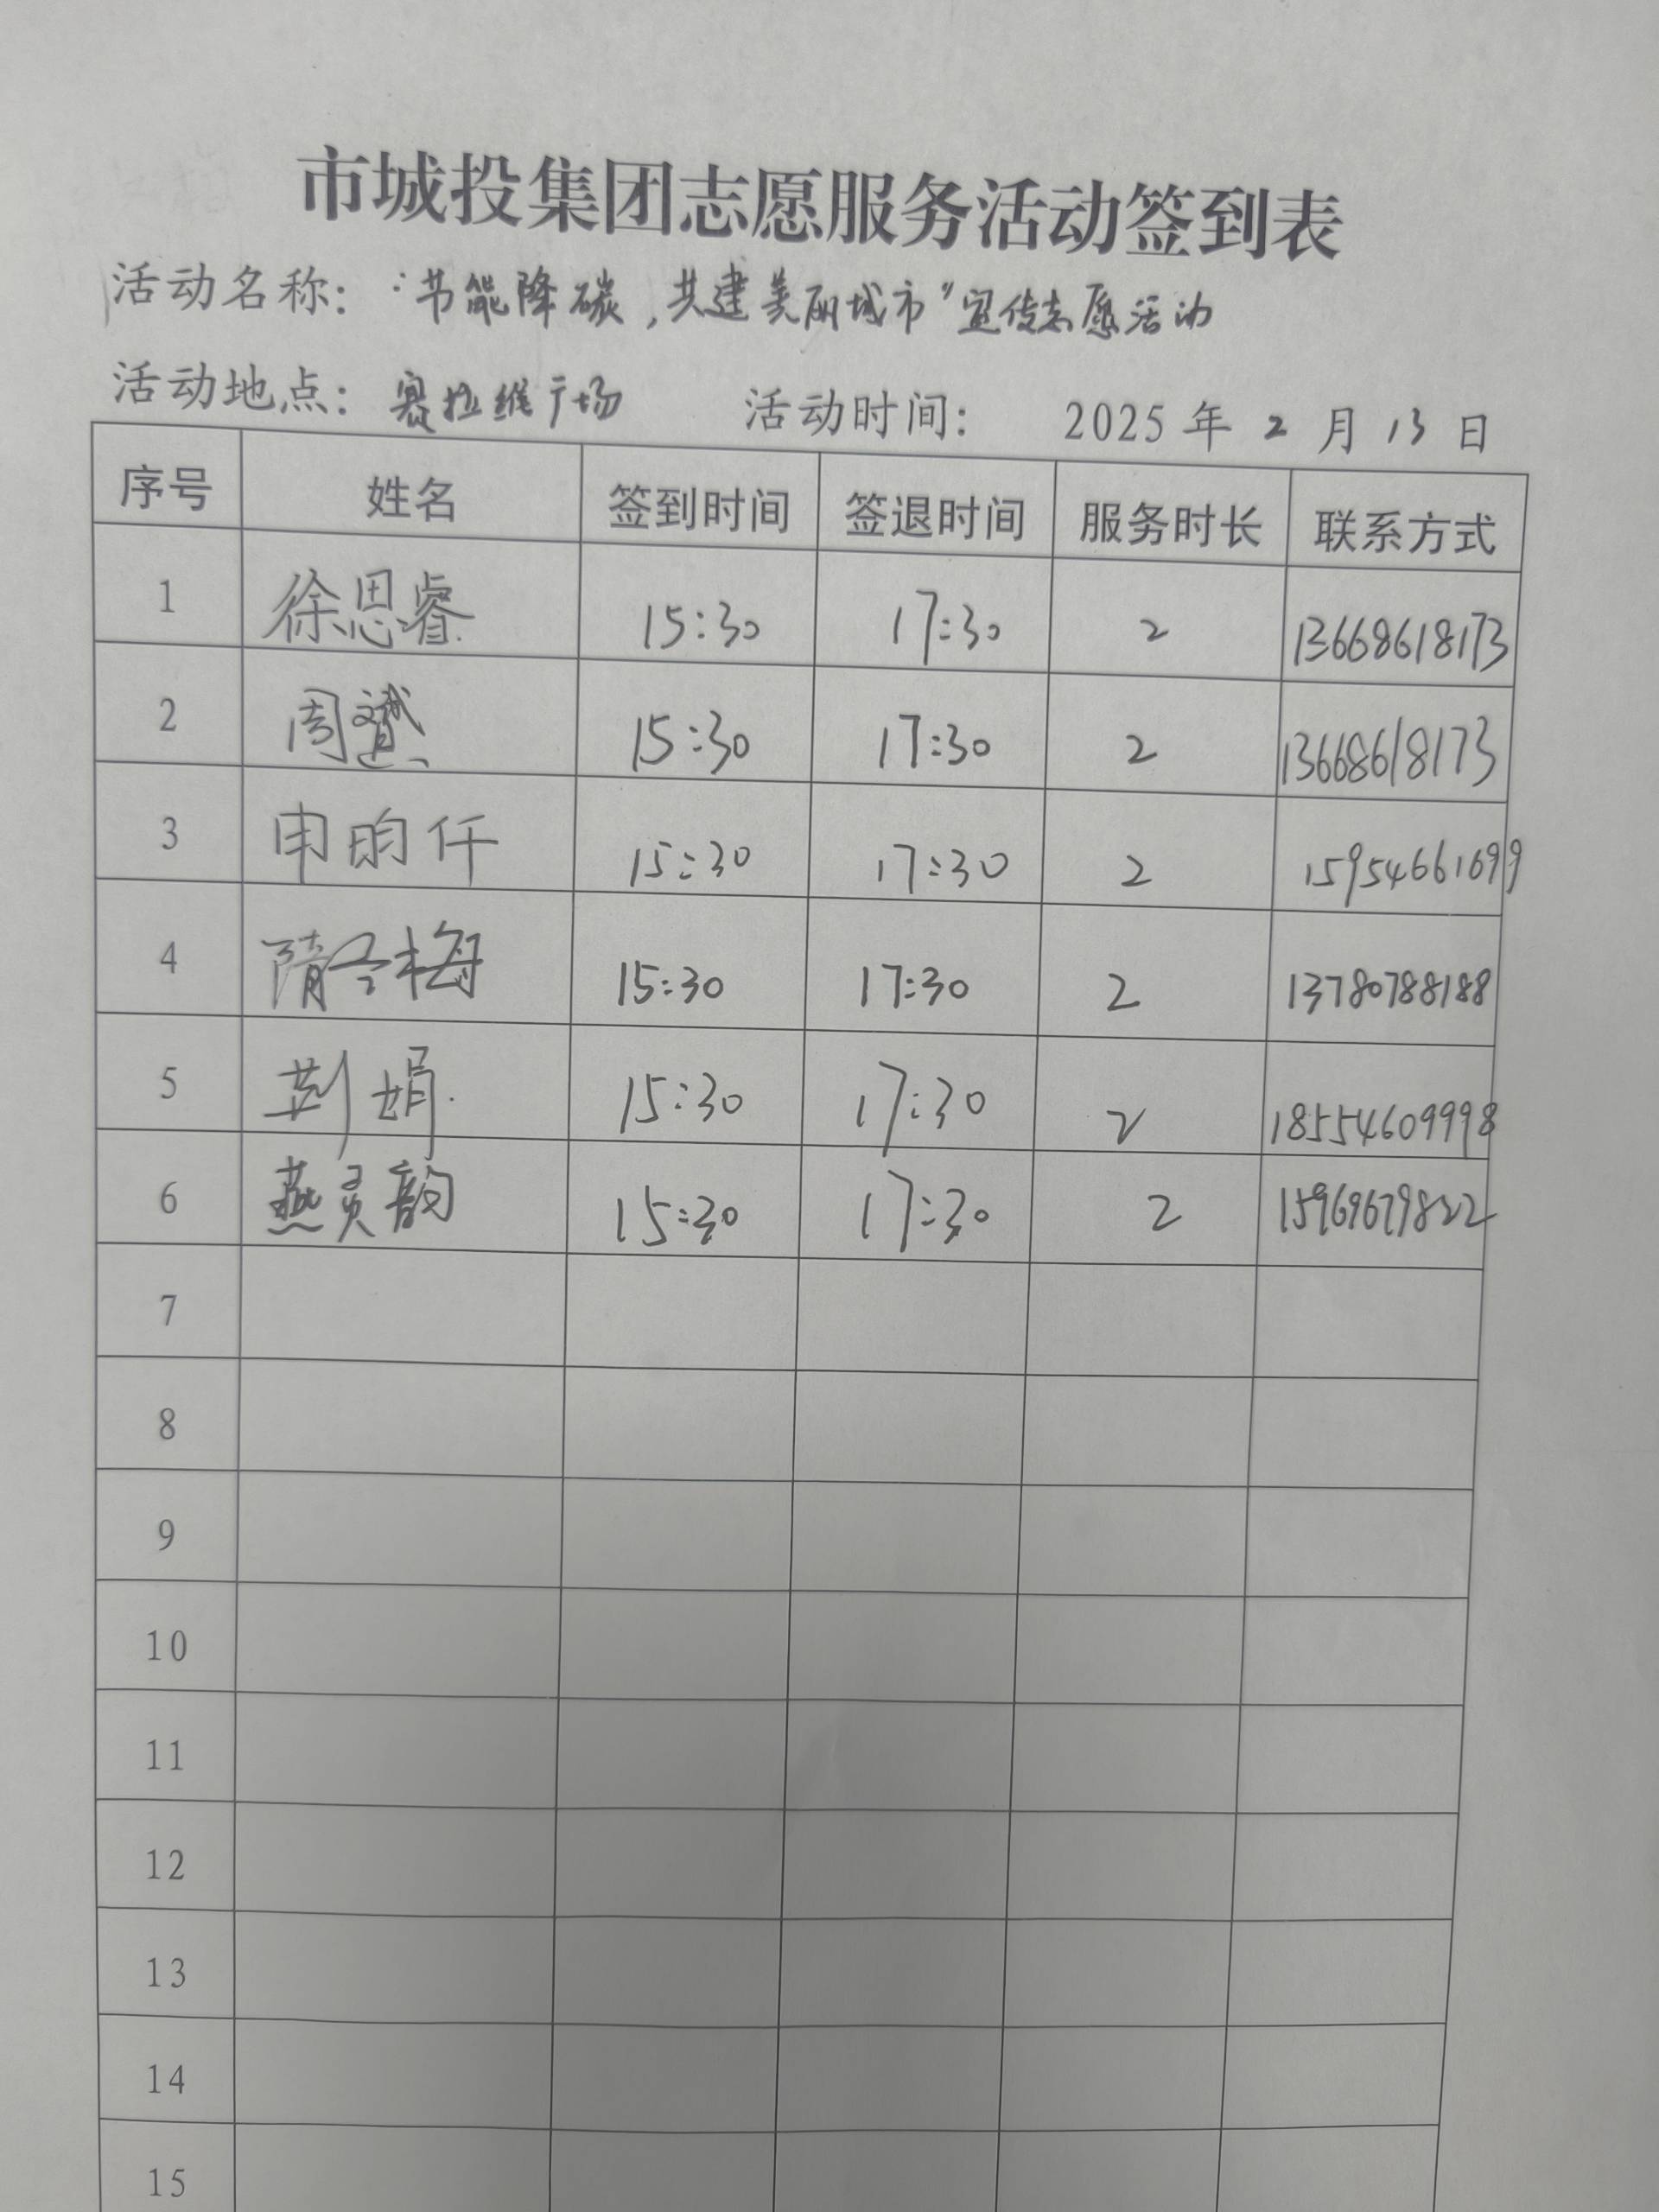 市城投集团志愿服务活动签到表
活动名称："节能降碳，共建美丽城市"宣传志愿活动
活动地点：赛拉维广场 活动时间： 2025年2月13日
序号 姓名 签到时间 签退时间 服务时长 联系方式
1 徐思睿 15:30 17:30 2 13668618173
2 周赟 15:30 17:30 2 13668618173
3 申昀仟 15:30 17:30 2 15954661699
4 隋冬梅 15:30 17:30 2 13780788188
5 荆娟 15:30 17:30 2 18554609998
6 燕灵韵 15:30 17:30 2 15969679822
7
8
9
10
11
12
13
14
15